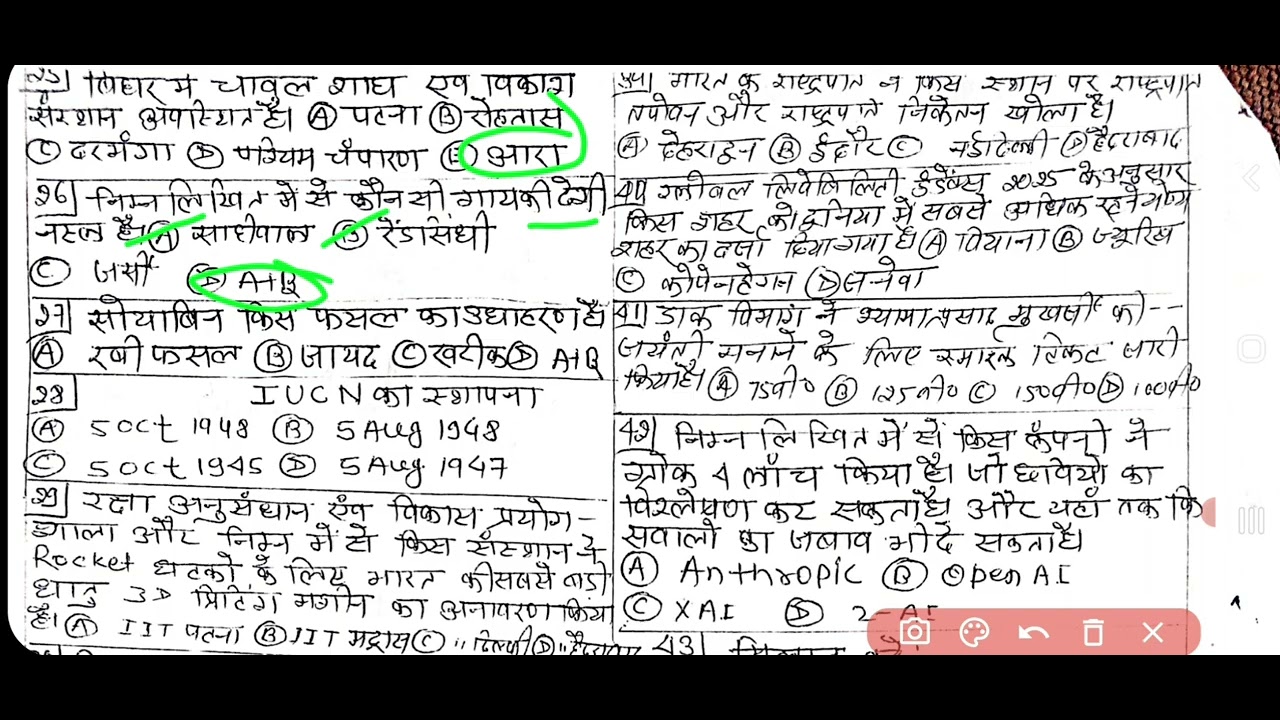 25] बिहार में चावल शोध एवं विकाश
संस्थान अवस्थित है। Ⓐ पटना Ⓑ रोहतास
Ⓒ दरभंगा Ⓓ पश्चिम चंपारण Ⓔ आरा
26] निम्नलिखित में से कौन सी गाय की देशी
नस्ल है। Ⓐ साहीवाल Ⓑ रेंडसिंधी
Ⓒ जर्सी Ⓓ A+B
27] सोयाबिन किस फसल का उदाहरण है
Ⓐ रबी फसल Ⓑ जायद Ⓒ खरीफ Ⓓ A+B
28] IUCN का स्थापना
Ⓐ 5 Oct 1948 Ⓑ 5 Aug 1948
Ⓒ 5 Oct 1945 Ⓓ 5 Aug 1947
29] रक्षा अनुसंधान एंव विकास प्रयोग-
शाला और निम्न में से किस संस्थान ने
Rocket घटको के लिए भारत की सबसे बड़ी
धातु 3D प्रिटिंग मशीन का अनावरण किया
है। Ⓐ IIT पटना Ⓑ IIT मद्रास Ⓒ " दिल्ली Ⓓ " हैदराबाद
भारत के राष्ट्रपति ने किस स्थान पर राष्ट्रपति
तपोवन और राष्ट्रपति निकेतन खोला है।
Ⓐ देहरादून Ⓑ इंदौर Ⓒ नई दिल्ली Ⓓ हैदराबाद
40] ग्लोबल लिवेबिलिटी इंडेक्स 2025 के अनुसार
किस शहर को दुनिया में सबसे अधिक रहने योग्य
शहर का दर्जा दिया गया है Ⓐ वियाना Ⓑ ज्यूरिख
Ⓒ कोपेनहेगन Ⓓ जनेवा
41] डाक विभाग ने श्यामाप्रसाद मुखर्जी की --
जयंती मनाने के लिए स्मारक टिकट जारी
किया है। Ⓐ 75वी० Ⓑ 125वी० Ⓒ 150वी० Ⓓ 100वी०
42] निम्नलिखित में सें किस कंपनी ने
ग्रोक 4 लॉंच किया है। जो छवियो का
विश्लेषण कर सकता है और यहाँ तक कि
सवालो का जबाव भी दे सकता है।
Ⓐ Anthropic Ⓑ Open AI
Ⓒ XAI Ⓓ Z-AI
43]